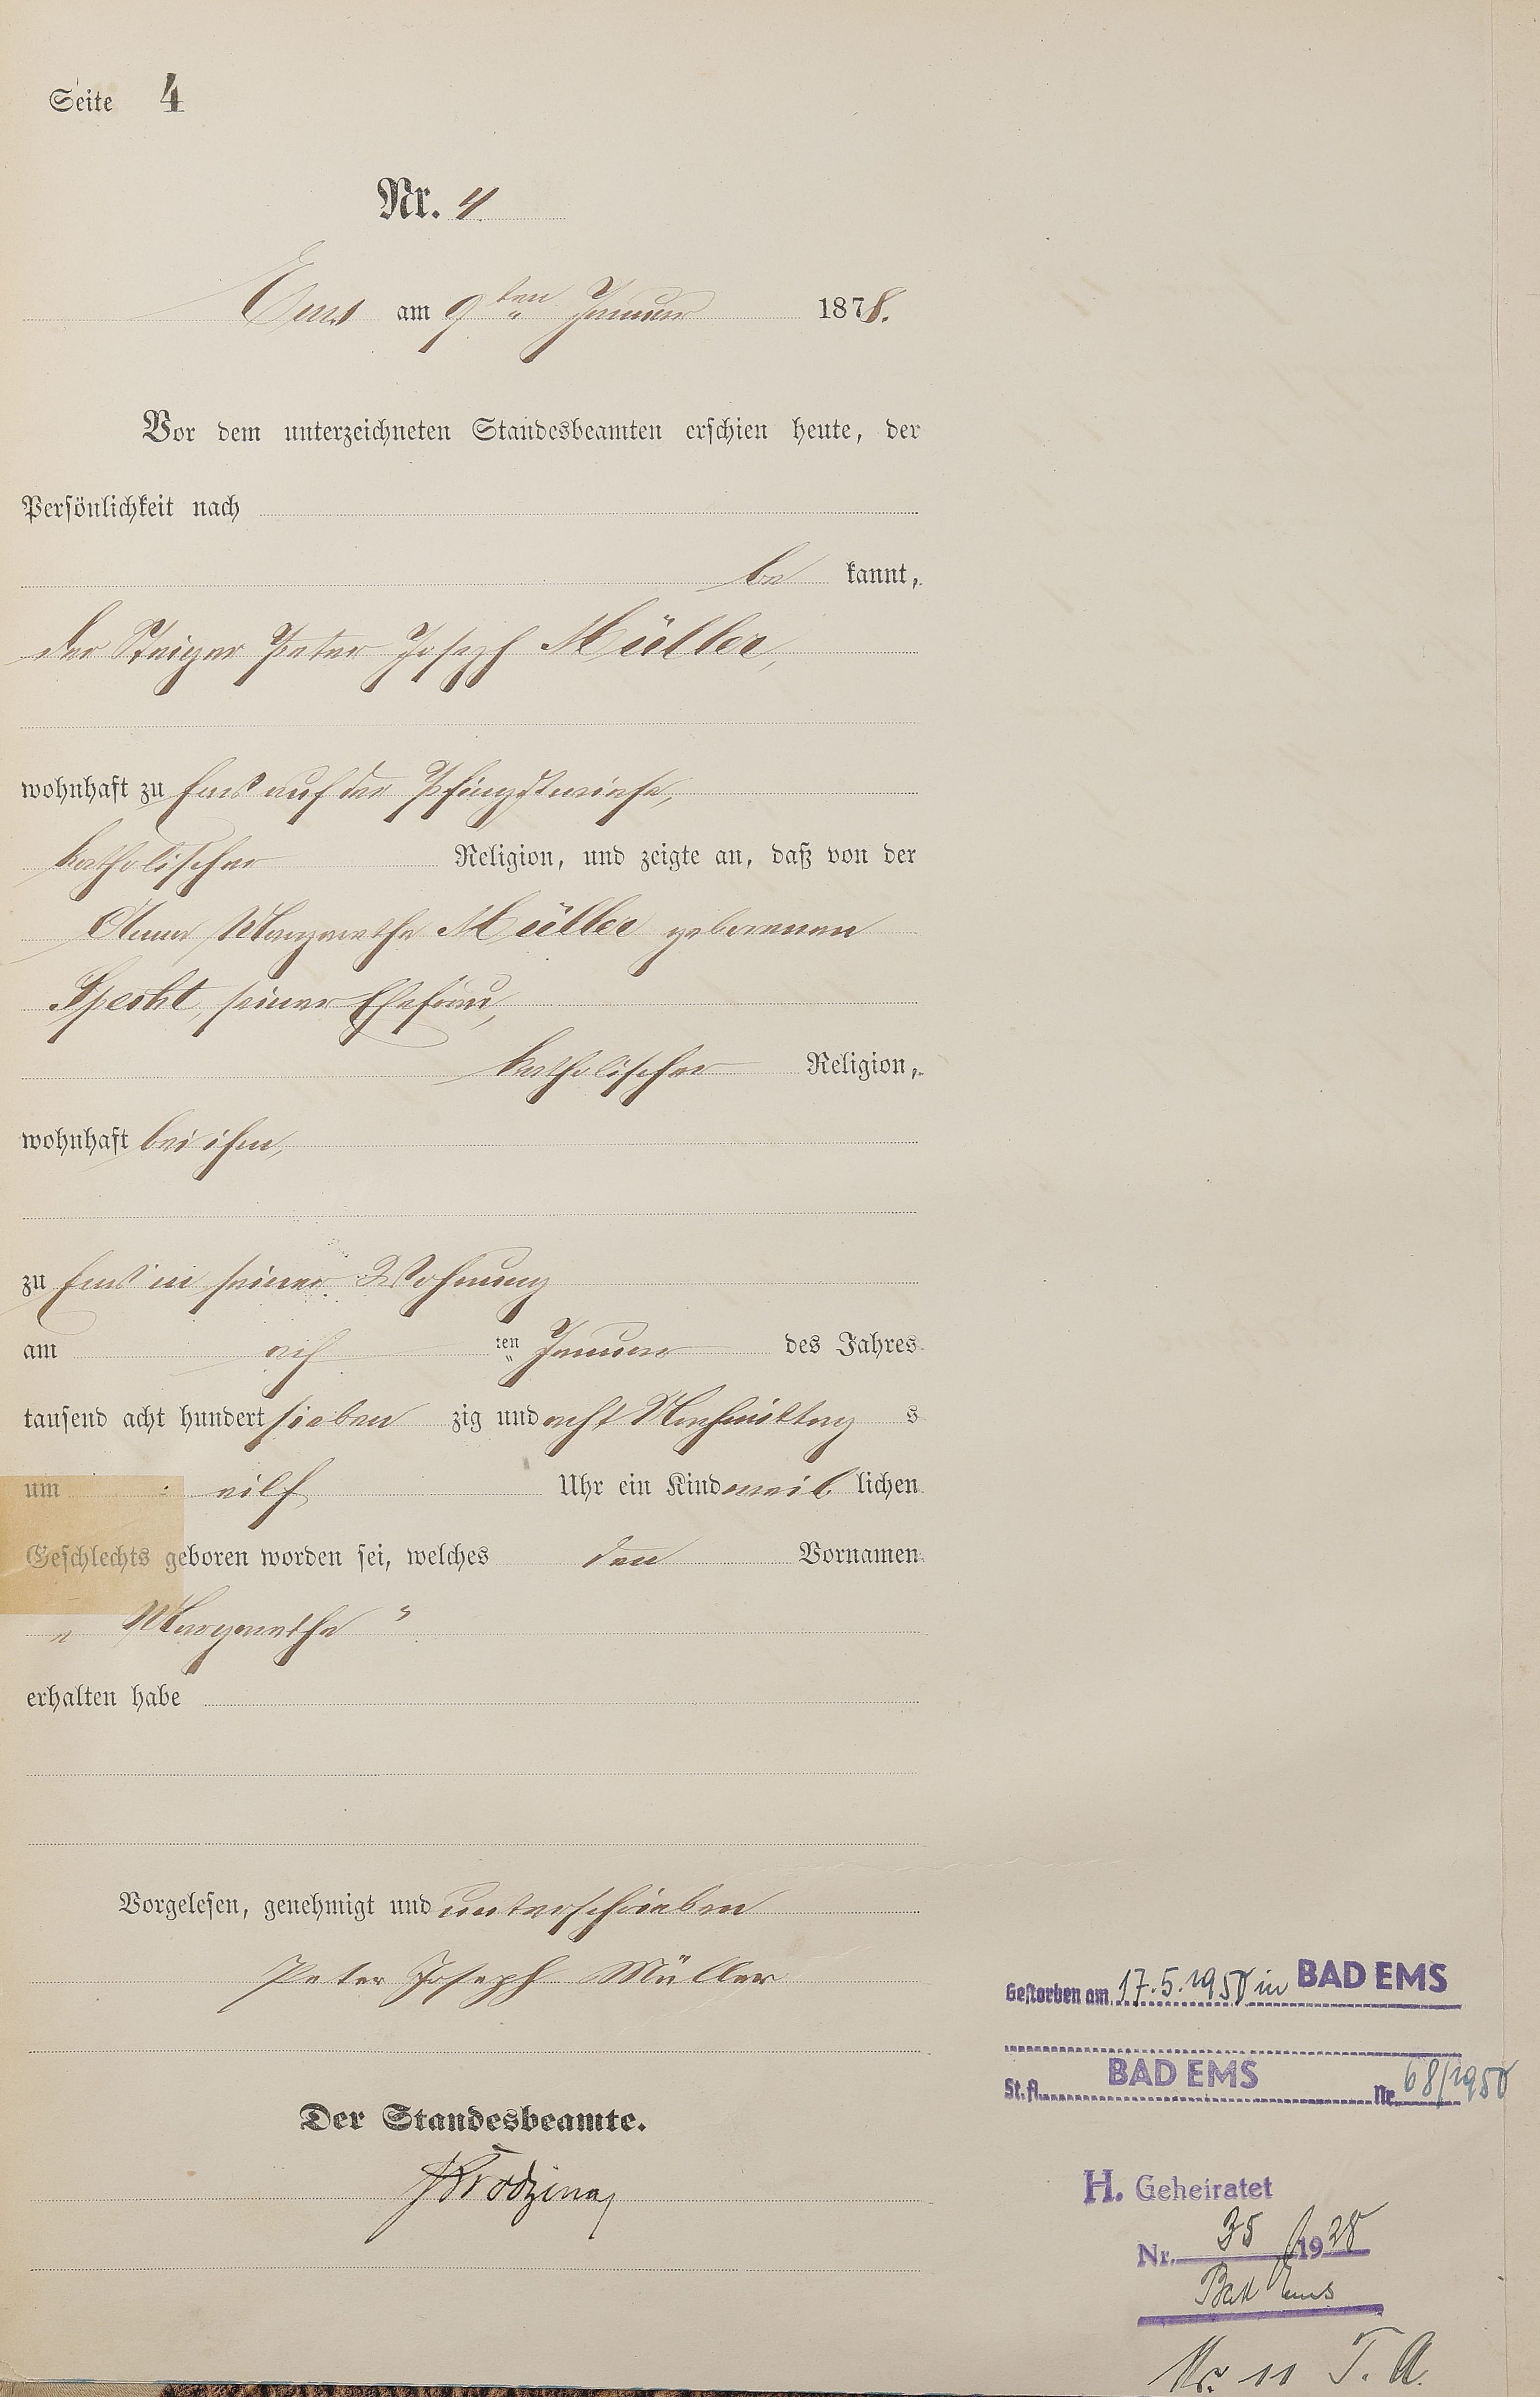 Seite 4
Nr. 4
Ems am 9ten Januar 1878.
Vor dem unterzeichneten Standesbeamten erschien heute, der
Persönlichkeit nach
be kannt,
der Steiger Peter Joseph Müller,
wohnhaft zu Ems auf der Pfingstwiese,
katholischer Religion, und zeigte an, daß von der
Anna Margarethe Müller geborenen
Specht, seiner Ehefrau,
katholischer Religion,
wohnhaft bei ihm,
zu Ems in seiner Wohnung
am ten Januar des Jahres
tausend acht hundert sieben zig und acht Nachmittag s
um eilf Uhr ein Kind weib lichen
Geschlechts geboren worden sei, welches den Vornamen
„ Margarethe "
erhalten habe
Vorgelesen, genehmigt und unterschrieben
Peter Joseph Müller
Der Standesbeamte.
Gestorben am 17.5.1950 in BAD EMS
St.A. BAD EMS Nr. 68/1950
H. Geheiratet
Nr. 35 /1928
Bad Ems
Nr. 11 T. A.